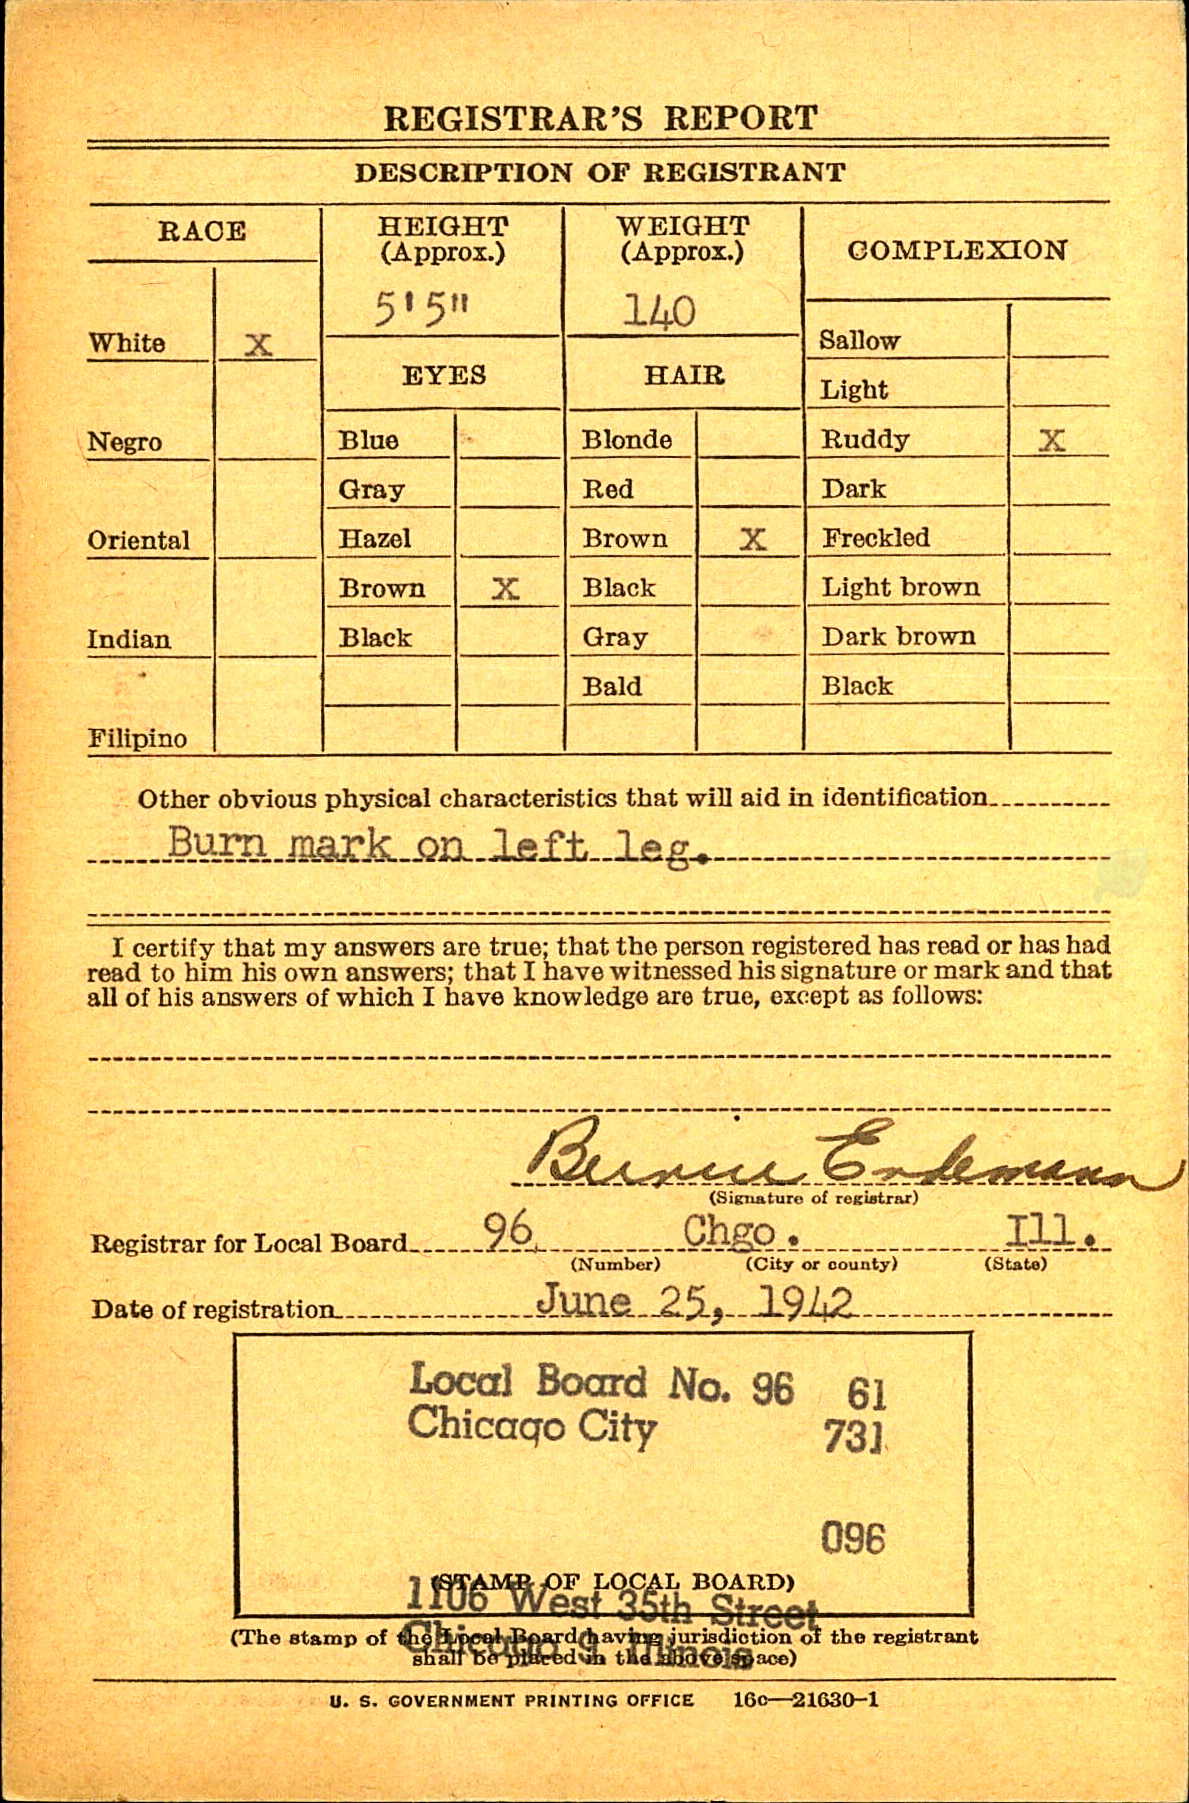 REGISTRAR'S REPORT
DESCRIPTION OF REGISTRANT
RACE
HEIGHT
(Approx.)
WEIGHT
(Approx.)
COMPLEXION
5'5"
140
White X
Sallow
EYES
HAIR
Light
Negro
Blue
Blonde
Ruddy X
Gray
Red
Dark
Oriental
Hazel
Brown X
Freckled
Brown X
Black
Light brown
Indian
Black
Gray
Dark brown
Bald
Black
Filipino
Other obvious physical characteristics that will aid in identification
Burn mark on left leg.
I certify that my answers are true; that the person registered has read or has had
read to him his own answers; that I have witnessed his signature or mark and that
all of his answers of which I have knowledge are true, except as follows:
Bernie Erdemann
(Signature of registrar)
Registrar for Local Board 96 Chgo. Ill.
(Number) (City or county) (State)
Date of registration June 25, 1942
Local Board No. 96 61
Chicago City 731
096
(STAMP OF LOCAL BOARD)
1106 West 35th Street
Chicago 9 Illinois
(The stamp of the Local Board having jurisdiction of the registrant
shall be placed in the above space)
U. S. GOVERNMENT PRINTING OFFICE 16c—21630-1